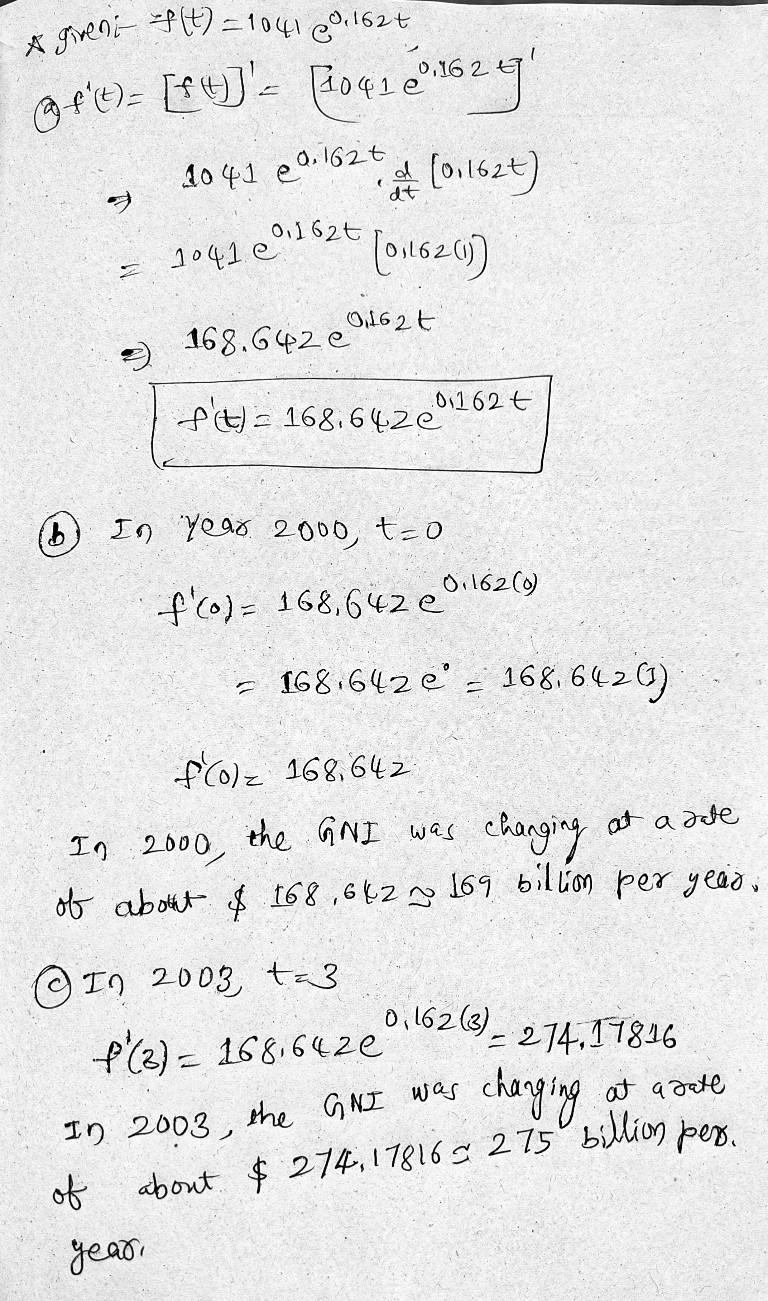 * given:- f(t) = 1041 e^0.162t
(a) f'(t) = [f(t)]' = [1041 e^0.162t]'
⇒ 1041 e^0.162t . d/dt [0.162t]
= 1041 e^0.162t [0.162(1)]
⇒ 168.642 e^0.162t
f'(t) = 168.642 e^0.162t
(b) In year 2000, t=0
f'(0) = 168.642 e^0.162(0)
= 168.642 e° = 168.642 (1)
f'(0) = 168.642
In 2000, the GNI was changing at a rate
of about $ 168.642 ≈ 169 billion per year.
(c) In 2003, t=3
f'(3) = 168.642 e^0.162(3) = 274.17816
In 2003, the GNI was changing at a rate
of about $ 274.17816 ≈ 275 billion per.
year.